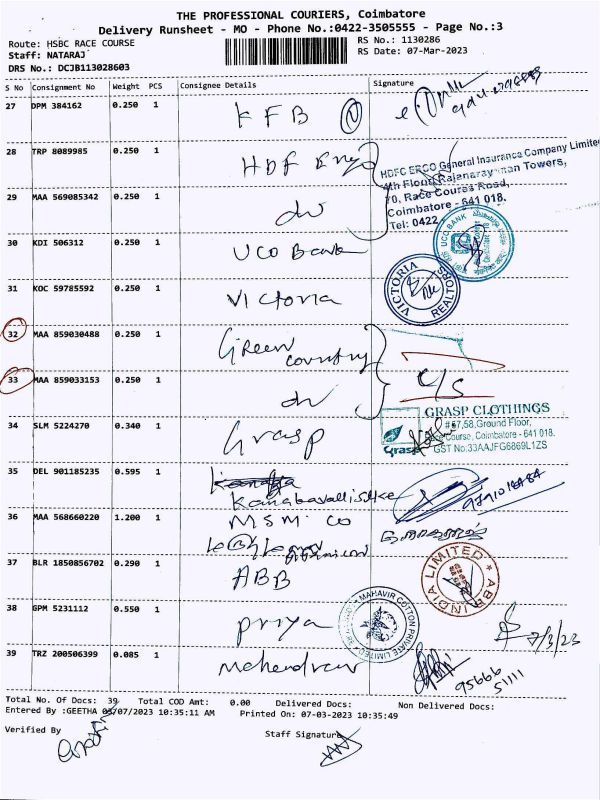 THE PROFESSIONAL COURIERS, Coimbatore
Delivery Runsheet - MO - Phone No.:0422-3505555 - Page No.:3
Route: HSBC RACE COURSE
RS No.: 1130286
Staff: NATARAJ
RS Date: 07-Mar-2023
DRS No.: DCJB113028603
S No Consignment No Weight PCS Consignee Details Signature
27 DPM 384162 0.250 1 KFB
28 TRP 8089985 0.250 1 HDF Ergo
HDFC ERGO General Insurance Company Limited
4th Floor, Rajanarayanan Towers,
70, Race Course Road,
Coimbatore - 641 018.
Tel: 0422
29 MAA 569085342 0.250 1 do
30 KDI 506312 0.250 1 UCO Bank
UCO BANK
31 KOC 59785592 0.250 1 Victoria
VICTORIA REALTORS
32 MAA 859030488 0.250 1 Green
country
33 MAA 859033153 0.250 1 do
C/S
34 SLM 5224270 0.340 1 Grasp
GRASP CLOTHINGS
#57,58,Ground Floor,
Race Course, Coimbatore - 641 018.
GST No:33AAJFG6869L1ZS
Grasp
35 DEL 901185235 0.595 1
36 MAA 568660220 1.200 1 MSM CO
37 BLR 1850856702 0.290 1 ABB
ABB INDIA LIMITED
38 GPM 5231112 0.550 1 Priya
MAHAVIR COTTON PRIVATE LIMITED
7/3/23
39 TRZ 200506399 0.085 1 Mahendran
95666
51111
Total No. Of Docs: 39 Total COD Amt: 0.00 Delivered Docs: Non Delivered Docs:
Entered By :GEETHA 03/07/2023 10:35:11 AM Printed On: 07-03-2023 10:35:49
Verified By
Staff Signature